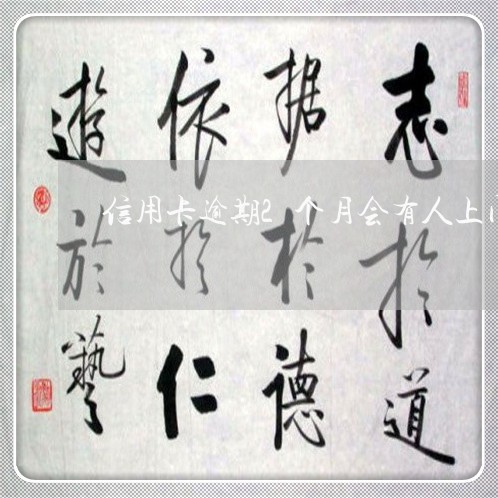 志於道
据於德
依於仁
遊於藝
信用卡逾期2个月会有人上